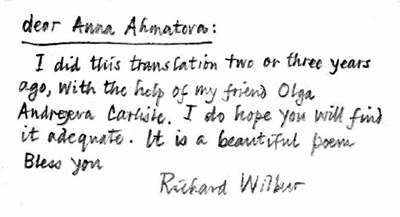 dear Anna Ahmatova:
I did this translation two or three years
ago, with the help of my friend Olga
Andreyeva Carlisle. I do hope you will find
it adequate. It is a beautiful poem
Bless you
Richard Wilbur